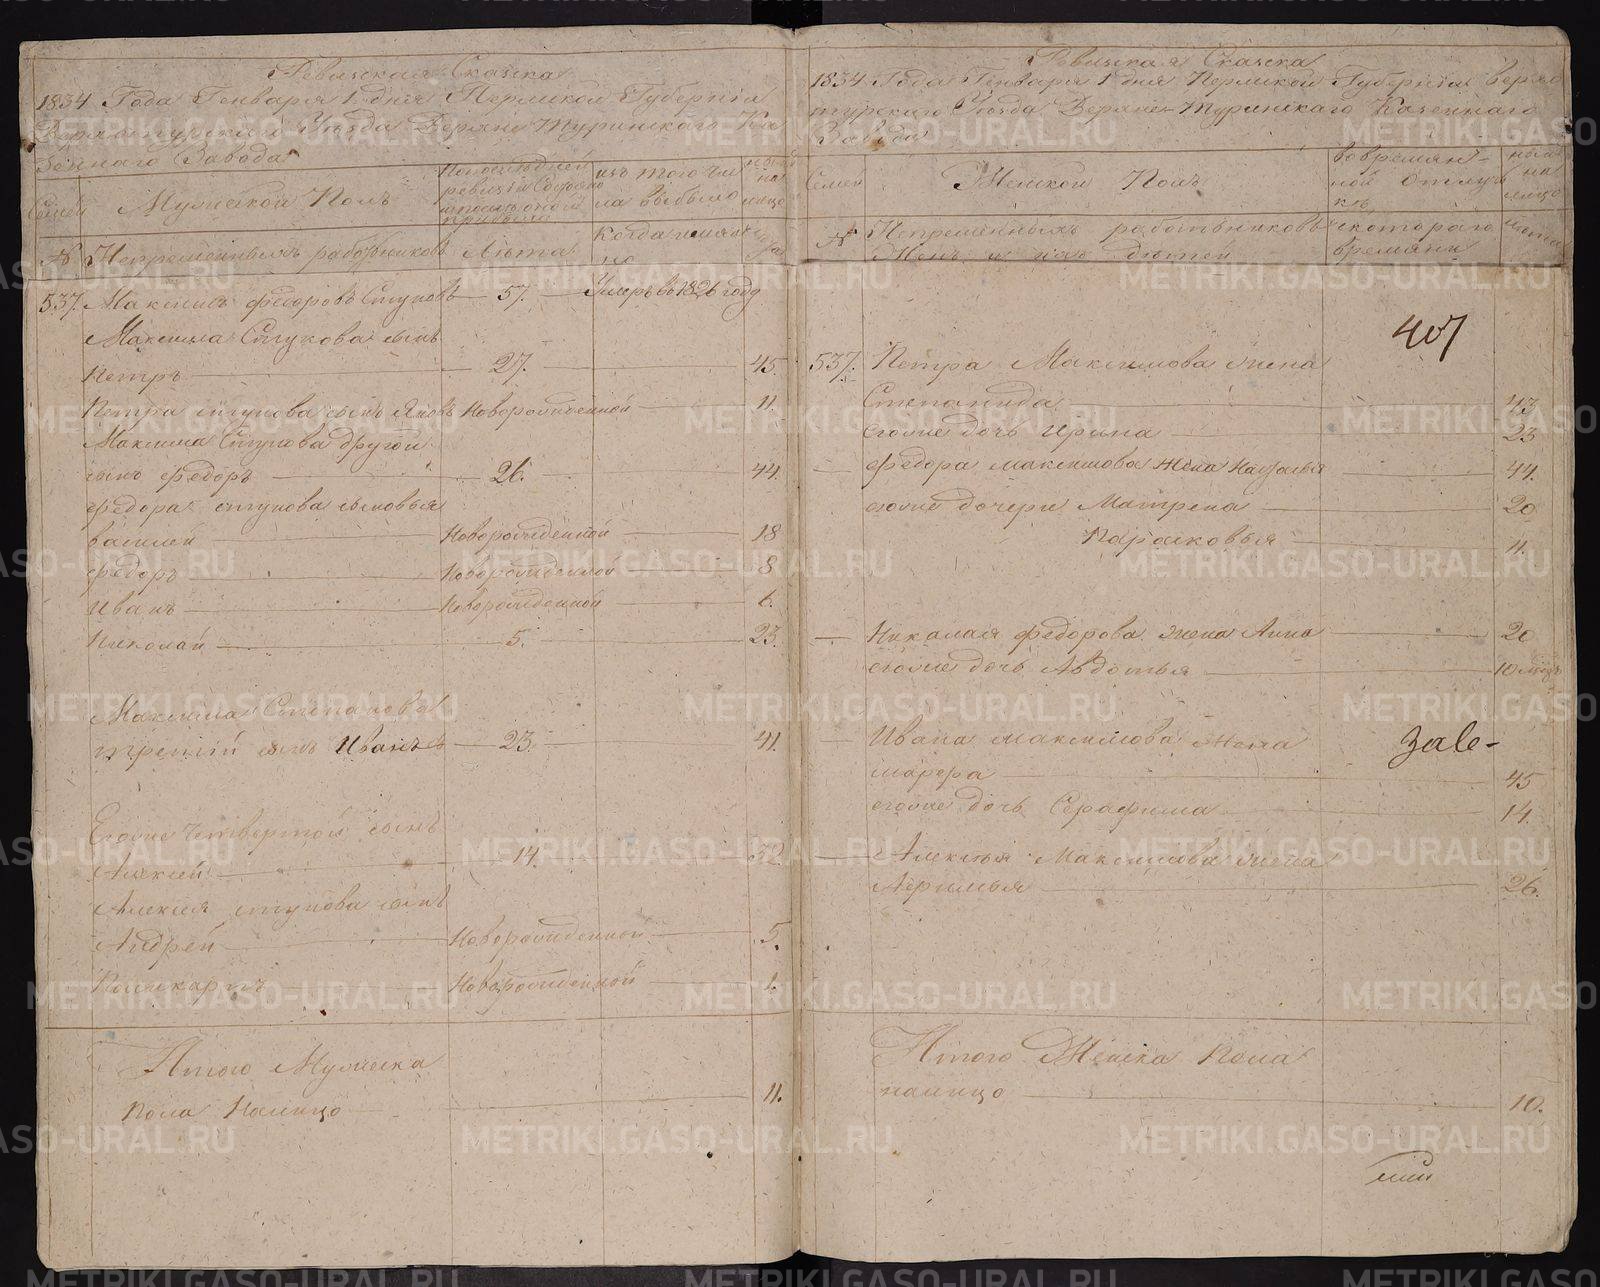 Ревижская Сказка
1834 Года Генваря 1 дня Пермской Губернiи
Верхотурскаго Уезда Верхне Туринскаго Ка
зеннаго Завода
Семей
Мужеской Полъ
По последней
ревизiи состояло
и после оной
прибыло
изъ того чи
сла выбыло
ныне
на
лицо
№
Непременныхъ работниковъ
Лета
Когда именно
537. Максимъ федоровъ Стуковъ 57. Умеръ во 1826 году
Максима Стукова сынъ
Петръ 27. 45.
Петра стукова сынъ Яковъ Новорожденной 11.
Максима Стукова другой
сынъ федоръ 26. 44.
федора стукова сыновья
василей Новорожденной 18
федоръ Новорожденной 8
Иванъ Новорожденной 6.
Николай 5. 23.
Максима Степанова
третiй сынъ Иванъ 23. 41.
Егоже четвертой сынъ
Алексей 14. 32
Алексея стукова сынъ
Андрей Новорожденной 5.
Поликарпъ Новорожденной 1.
Итого Мужеска
Пола Налицо 11.
Ревижская Сказка
1834 Года Генваря 1 дня Пермской Губернiи Верхо
турскаго Уезда Верхне-Туринскаго Казеннаго
Завода
Семей
Женской Полъ
во времян-
ной отлуч
ке
ныне
на
лицо
№
Непременныхъ работниковъ
Женъ и ихъ детей
скотораго
времяни
лета
407
537. Петра Максимова жена
Степанида 43
егоже дочь Ирина 23
федора максимова жена Наталья 44.
егоже дочери Матрена 20
Парасковья 11.
Николая федорова жена Анна 20
егоже дочь Авдотья 10 месц
Ивана максимова жена
марфа 45
егоже дочь Серафима 14.
Алексея Максимова жена
Афимья 26.
Итого Женска пола
налицо 10.
METRIKI.GASO-URAL.RU